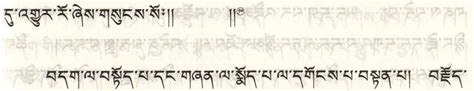 དུ་འགྱུར་རོ་ཞེས་གསུངས་སོ།། །།
བདག་ལ་བསྟོད་པ་དང་གཞན་ལ་སྨོད་པ་ལ་དགོངས་པ་བསྟན་པ། བརྗོད་